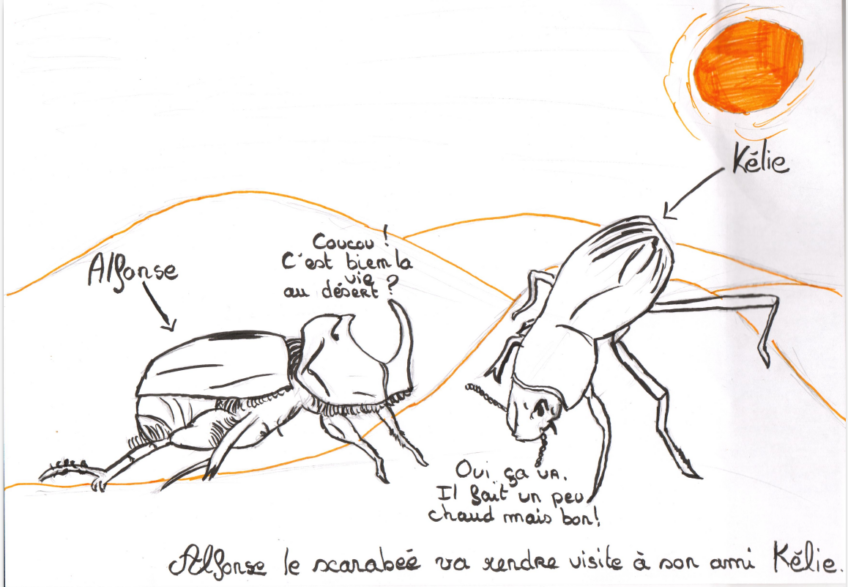 Kélie
Alfonse
Coucou !
C'est bien la
vie
au désert ?
Oui ça va.
Il fait un peu
chaud mais bon!
Alfonse le scarabéé va rendre visite à son ami Kélie.